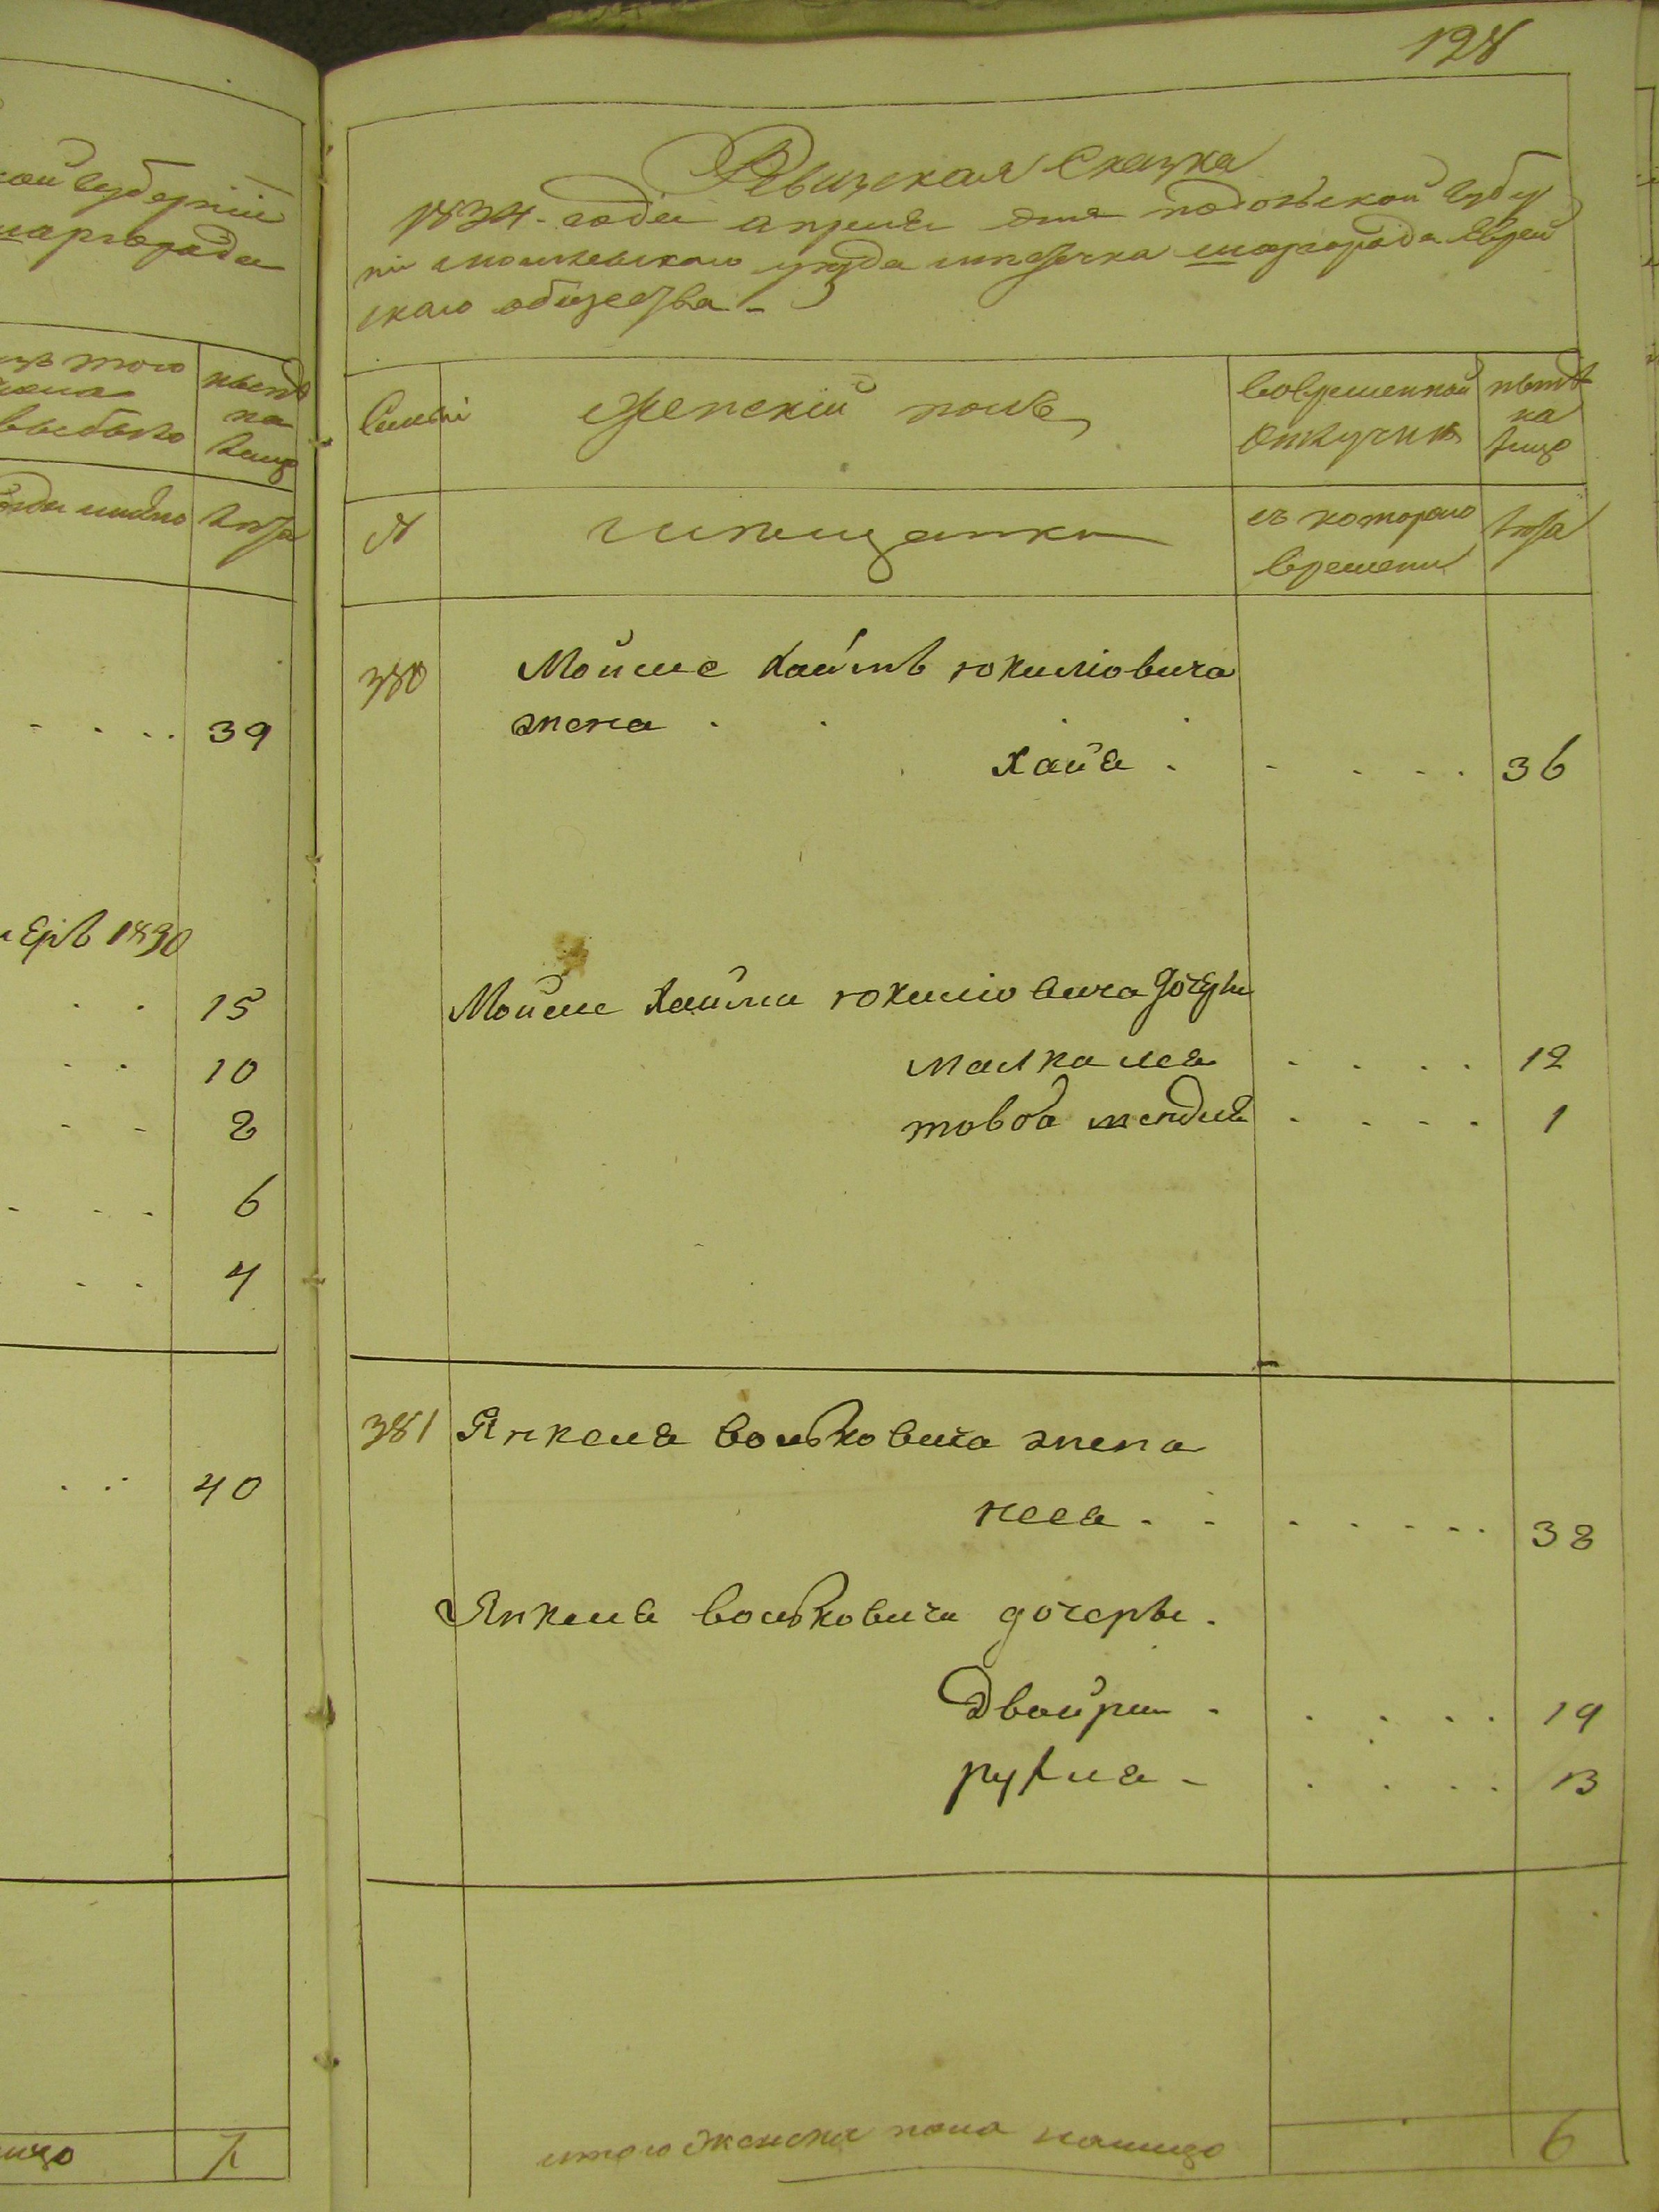 кой Губерніи
шаргорода
изъ того
числа
выбыло
нынѣ
на
лицо
лѣта
39
1830
15
10
8
6
4
40
7
128
Ревизская Сказка
1834. года апреля дня подольской Губер
ніи могилевскаго уезда местечка шаргорода Еврей
скаго общества -
Семьи
Женскій полъ
вовременной
отлучки
нынѣ
на
лицо
№
мещанки
съ котораго
времени
лѣта
380
Мойше Хаимъ юхимовича
жена . . . .
Хая . - . . . .
36
Мойше Хаима юхимовича дочери
малка лея . . . .
12
товба мендля . . . .
1
381
Янкеля вольковича жена
неся . . . . . . . .
38
Янкеля вольковича дочеры .
Двойра . . . . .
19
рухля - . . . .
13
итого женска пола налицо
6